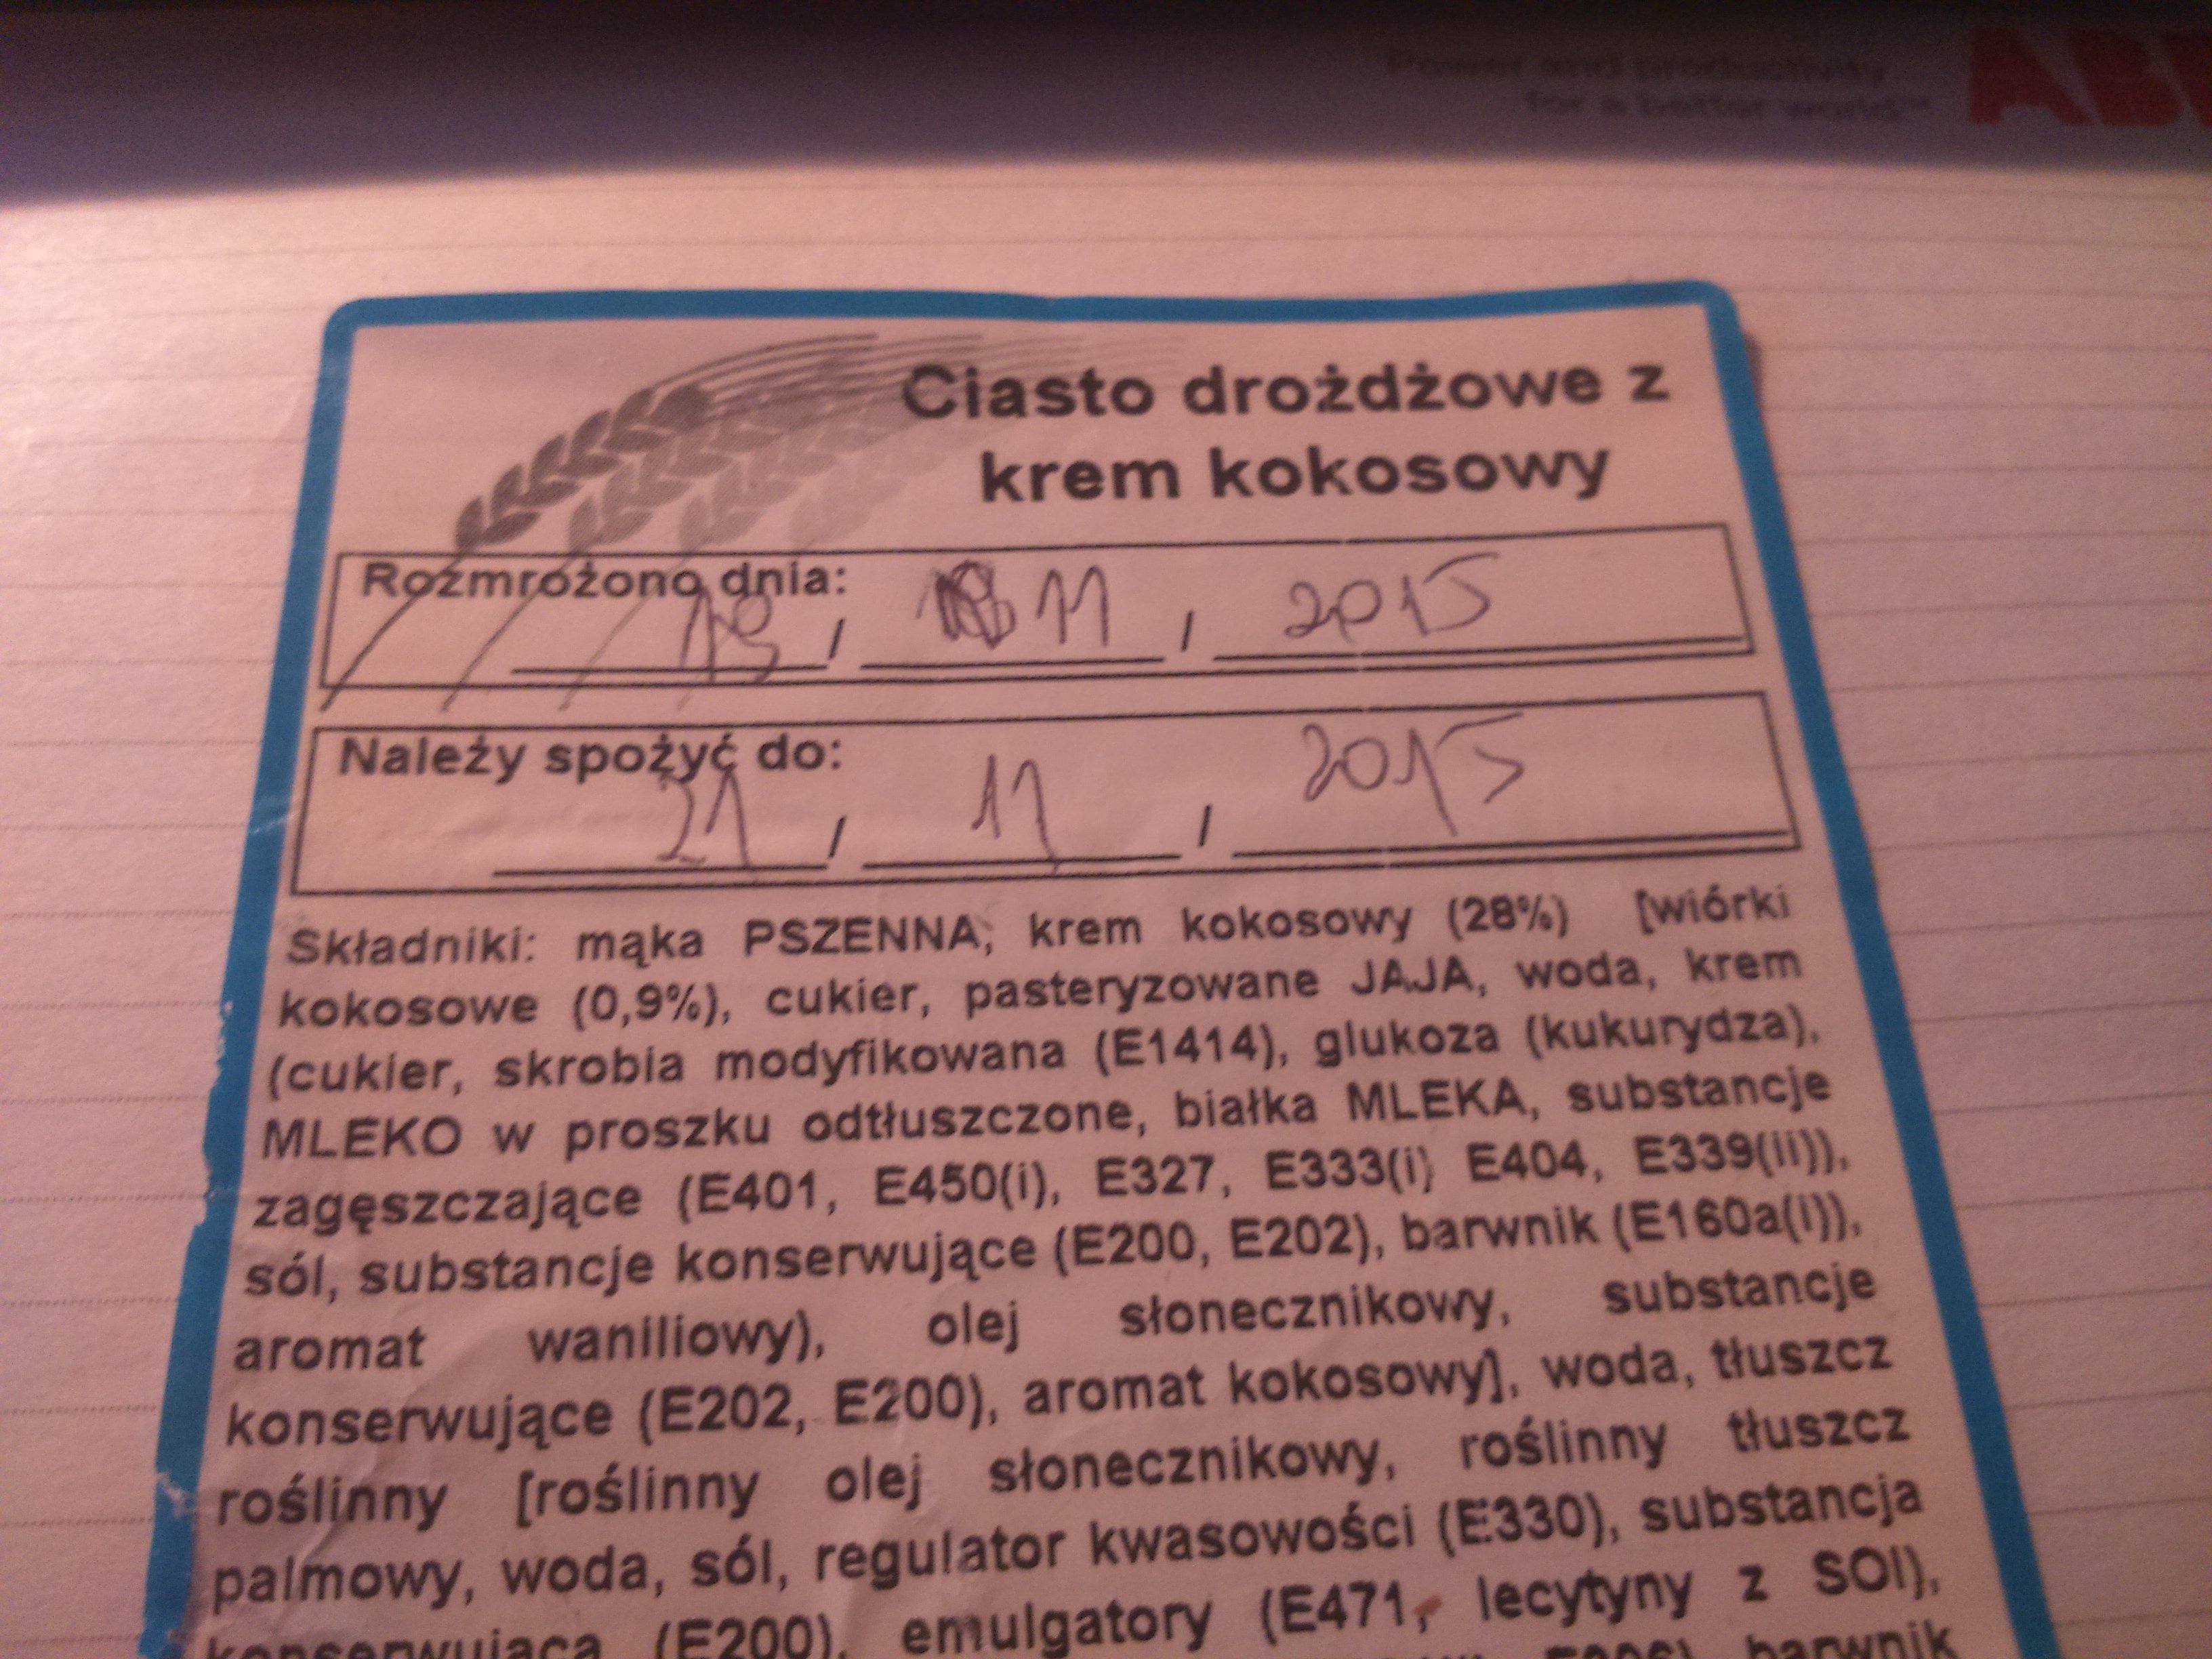 Power and productivity
for a better world™
ABB
Ciasto drożdżowe z
krem kokosowy
Rozmrożono dnia:
19 / 11 / 2015
Należy spożyć do:
21 / 11 / 2015
Składniki: mąka PSZENNA, krem kokosowy (28%) [wiórki
kokosowe (0,9%), cukier, pasteryzowane JAJA, woda, krem
(cukier, skrobia modyfikowana (E1414), glukoza (kukurydza),
MLEKO w proszku odtłuszczone, białka MLEKA, substancje
zagęszczające (E401, E450(i), E327, E333(i) E404, E339(ii)),
sól, substancje konserwujące (E200, E202), barwnik (E160a(i)),
aromat waniliowy), olej słonecznikowy, substancje
konserwujące (E202, E200), aromat kokosowy], woda, tłuszcz
roślinny [roślinny olej słonecznikowy, roślinny tłuszcz
palmowy, woda, sól, regulator kwasowości (E330), substancja
konserwująca (E200), emulgatory (E471, lecytyny z SOI),
barwnik